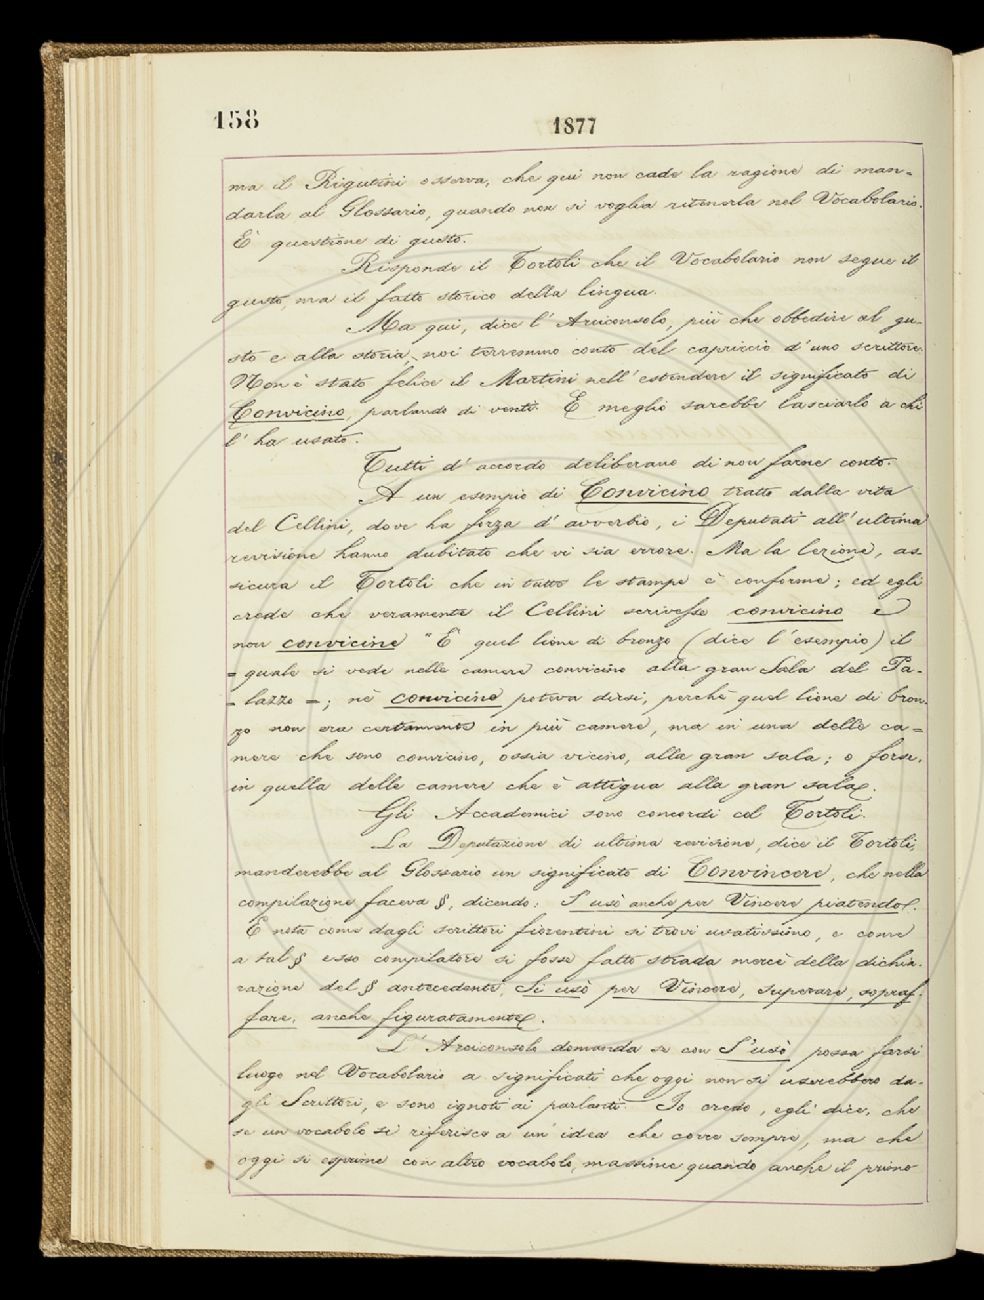 158
1877
ma il Rigutini osserva, che qui non cade la ragione di man=
darla al Glossario, quando non si voglia ritenerla nel Vocabolario.
È questione di gusto.
Risponde il Tortoli che il Vocabolario non segue il
gusto, ma il fatto storico della lingua.
Ma qui, dice l'Arciconsolo, più che obbedire al gu-
sto e alla storia, noi terremmo conto del capriccio d'uno scrittore.
Non è stato felice il Martini nell'estendere il significato di
Convicino, parlando di vento. E meglio sarebbe lasciarlo a chi
l'ha usato.
Tutti d'accordo deliberano di non farne conto.
A un esempio di Convicino tratto dalla vita
del Cellini, dove ha forza d'avverbio, i Deputati all'ultima
revisione hanno dubitato che vi sia errore. Ma la lezione, as-
sicura il Tortoli che in tutte le stampe è conforme; ed egli
crede che veramente il Cellini scrivesse convicino e
non convicine "E quel lione di bronzo (dice l'esempio) il
= quale si vede nelle camere convicino alla gran Sala del Pa-
= lazzo =; nè convicine poteva dirsi, perchè quel lione di bron-
zo non era certamente in più camere, ma in una delle ca=
mere che sono convicino, ossia vicino, alla gran sala; o forse,
in quella delle camere che è attigua alla gran sala.
Gli Accademici sono concordi col Tortoli.
La Deputazione di ultima revisione, dice il Tortoli,
manderebbe al Glossario un significato di Convincere, che nella
compilazione faceva §, dicendo: S'usò anche per Vincere piatendo.
E nota come dagli scrittori fiorentini si trovi usatissimo, e come
a tal § esso compilatore si fosse fatto strada mercè della dichia-
razione del § antecedente, Si usò per Vincere, superare, sopraf-
fare, anche figuratamente.
L'Arciconsolo domanda se con S'usò possa farsi
luogo nel Vocabolario a significati che oggi non si userebbero da-
gli Scrittori, e sono ignoti ai parlanti. Io credo, egli dice, che
se un vocabolo si riferisce a un'idea che corre sempre, ma che
oggi si esprime con altro vocabolo, massime quando anche il primo